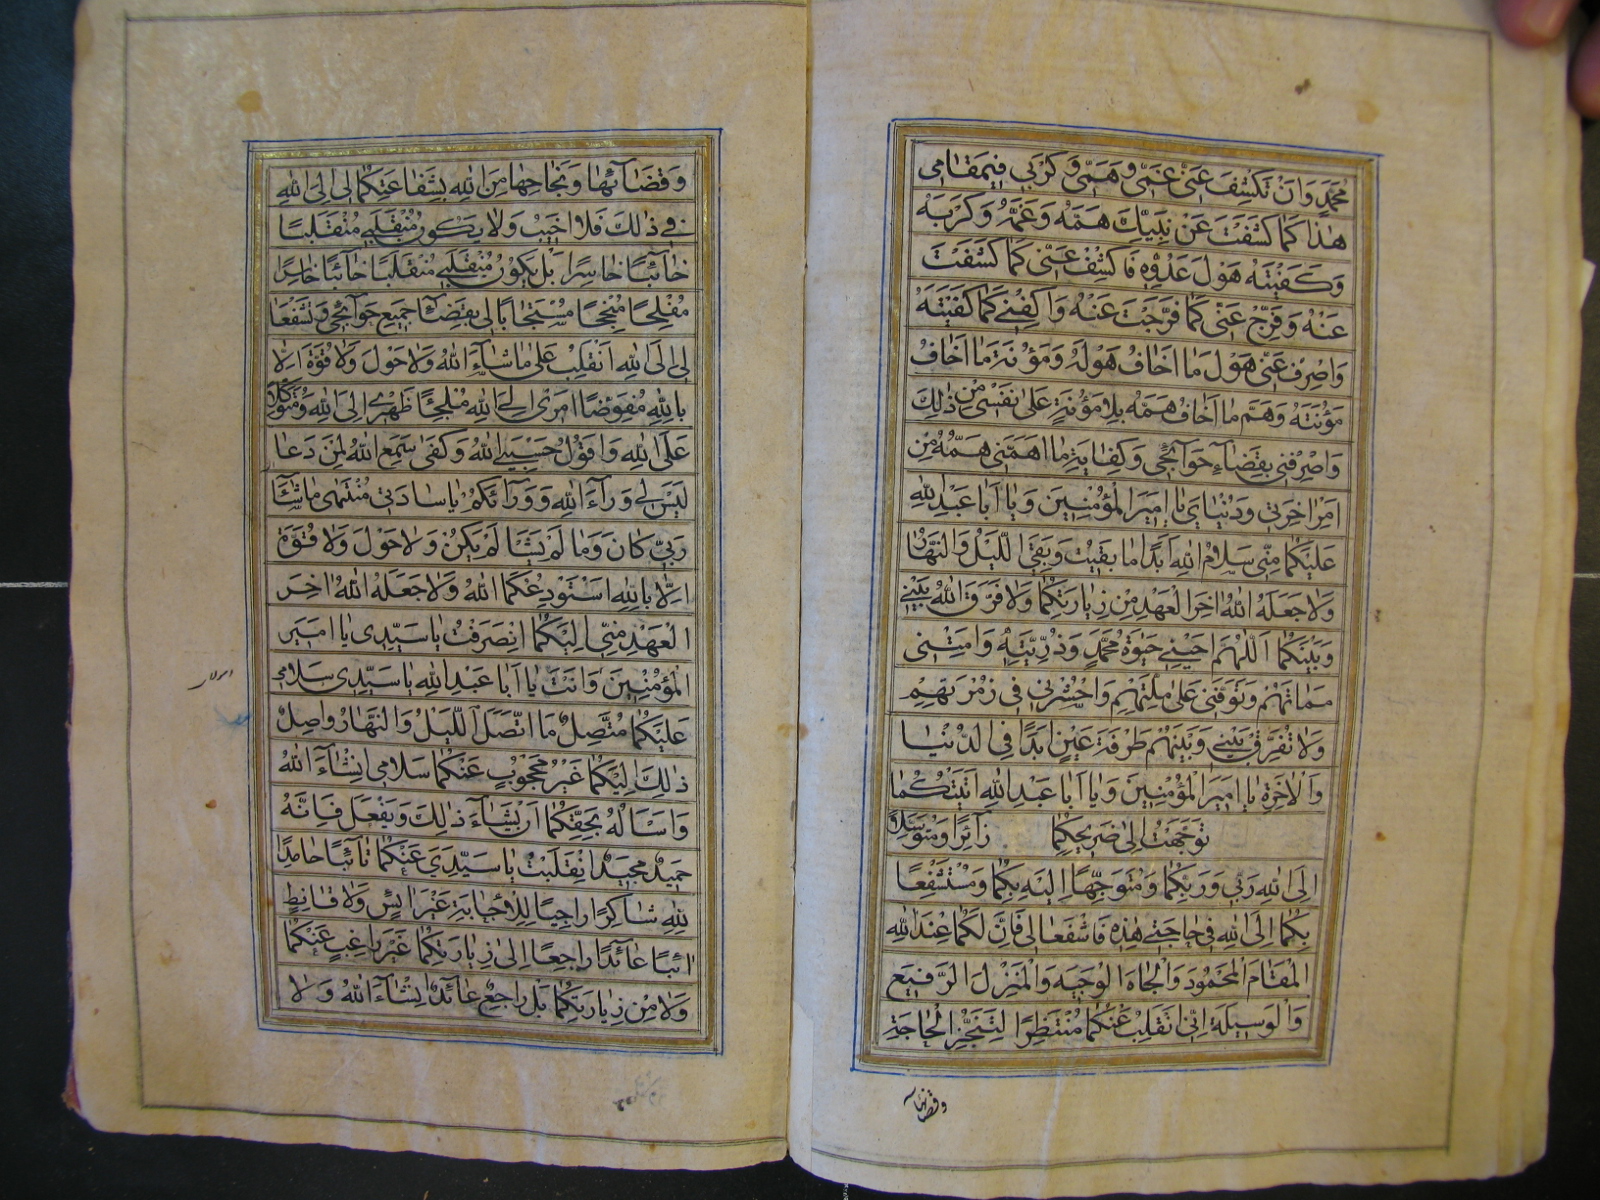 مُحَمَّدٍ وَاَنْ تَكْشِفَ عَنّى غَمّى وَهَمّى وَكَرْبى فِيمَقامى
هٰذا كَما كَشَفْتَ عَنْ نَبِيِّكَ هَمَّهُ وَغَمَّهُ وَكَرْبَهُ
وَكَفَيْتَهُ هَوْلَ عَدُوِّهِ فَاكْشِفْ عَنّى كَما كَشَفْتَ
عَنْهُ وَفَرِّجْ عَنّى كَما فَرَّجْتَ عَنْهُ وَاكْفِنى كَما كَفَيْتَهُ
وَاصْرِفْ عَنّى هَوْلَ ما اَخافُ هَوْلَهُ وَمَؤُنَةَ ما اَخافُ
مَؤُنَتَهُ وَهَمَّ ما اَخافُ هَمَّهُ بِلا مَؤُنَةٍ عَلى نَفْسى مِنْ ذلِكَ
وَاصْرِفْنى بِقَضاءِ حَوآئِجى وَكِفايَةِ ما اَهَمَّنى هَمُّهُ مِنْ
اَمْرِ اخِرَتى وَدُنْياىَ يا اَميرَ الْمُؤْمِنينَ وَيا اَبا عَبْدِ اللهِ
عَلَيْكُما مِنّى سَلامُ اللهِ اَبَدًا ما بَقيتُ وَبَقِىَ اللَّيْلُ وَالنَّهارُ
وَلا جَعَلَهُ اللهُ اخِرَ الْعَهْدِ مِنْ زِيارَتِكُما وَلا فَرَّقَ اللهُ بَيْنى
وَبَيْنَكُما اَللّهُمَّ اَحْيِنى حَيوةَ مُحَمَّدٍ وَذُرِّيَّتِهِ وَاَمِتْنى
مَماتَهُمْ وَتَوَفَّنى عَلى مِلَّتِهِمْ وَاحْشُرْنى فى زُمْرَتِهِمْ
وَلا تُفَرِّقْ بَيْنى وَبَيْنَهُمْ طَرْفَةَ عَيْنٍ اَبَدًا فِى الدُّنْيا
وَالْاخِرَةِ يا اَميرَ الْمُؤْمِنينَ وَيا اَبا عَبْدِ اللهِ اَتَيْتُكُما
تَوَجَّهْتُ اِلى ضَريحِكُما زآئِرًا وَمُتَوَسِّلًا
اِلَى اللهِ رَبّى وَرَبِّكُما وَمُتَوَجِّهًا اِلَيْهِ بِكُما وَمُسْتَشْفِعًا
بِكُما اِلَى اللهِ فى حاجَتى هذِهِ فَاشْفَعا لى فَاِنَّ لَكُما عِنْدَ اللهِ
الْمَقامَ الْمَحْمُودَ وَالْجاهَ الْوَجيهَ وَالْمَنْزِلَ الرَّفيعَ
وَالْوَسيلَةَ اِنّى اَنْقَلِبُ عَنْكُما مُنْتَظِرًا لِتَنَجُّزِ الْحاجَةِ
وقضائها
وَقَضآئِها وَنَجاحِها مِنَ اللهِ بِشَفاعَتِكُما لى اِلَى اللهِ
فى ذلِكَ فَلا اَخيبُ وَلا يَكُونُ مُنْقَلَبى مُنْقَلَبًا
خآئِبًا خاسِرًا بَلْ يَكُونُ مُنْقَلَبى مُنْقَلَبًا خآئِبًا خاسِرًا
مُفْلِحًا مُنْجِحًا مُسْتَجابًا لى بِقَضآءِ جَميعِ حَوآئِجى وَتَشَفَّعا
لى اِلَى اللهِ اَنْقَلِبُ عَلى ما شآءَ اللهُ وَلا حَوْلَ وَلا قُوَّةَ اِلّا
بِاللهِ مُفَوِّضًا اَمْرى اِلَى اللهِ مُلْجِئًا ظَهْرى اِلَى اللهِ وَمُتَوَكِّلًا
عَلَى اللهِ وَاَقُولُ حَسْبِىَ اللهُ وَكَفى سَمِعَ اللهُ لِمَنْ دَعا
لَيْسَ لى وَرآءَ اللهِ وَوَرآئَكُمْ يا سادَتى مُنْتَهى ما شآءَ
رَبّى كانَ وَما لَمْ يَشَأْ لَمْ يَكُنْ وَلا حَوْلَ وَلا قُوَّةَ
اِلّا بِاللهِ اَسْتَوْدِعُكُمَا اللهُ وَلا جَعَلَهُ اللهُ اخِرَ
الْعَهْدِ مِنّى اِلَيْكُما اِنْصَرَفْتُ يا سَيِّدى يا اَميرَ
الْمُؤْمِنينَ وَاَنْتَ يا اَبا عَبْدِ اللهِ يا سَيِّدى سَلامى
عَلَيْكُما مُتَّصِلٌ مَا اتَّصَلَ اللَّيْلُ وَالنَّهارُ واصِلٌ
ذلِكَ اِلَيْكُما غَيْرُ مَحْجُوبٍ عَنْكُما سَلامى اِنْشآءَ اللهُ
وَاَسْأَلُهُ بِحَقِّكُما اَنْ يَشآءَ ذلِكَ وَيَفْعَلَ فَاِنَّهُ
حَميدٌ مَجيدٌ اِنْقَلَبْتُ يا سَيِّدَىَّ عَنْكُما تآئِبًا حامِدًا
لِلّهِ شاكِرًا راجِيًا لِلْاِجابَةِ غَيْرَ ائِسٍ وَلا قانِطٍ
ائِبًا عآئِدًا راجِعًا اِلى زِيارَتِكُما غَيْرَ راغِبٍ عَنْكُما
وَلا مِنْ زِيارَتِكُما بَلْ راجِعٌ عآئِدٌ اِنْشآءَ اللهُ وَلا